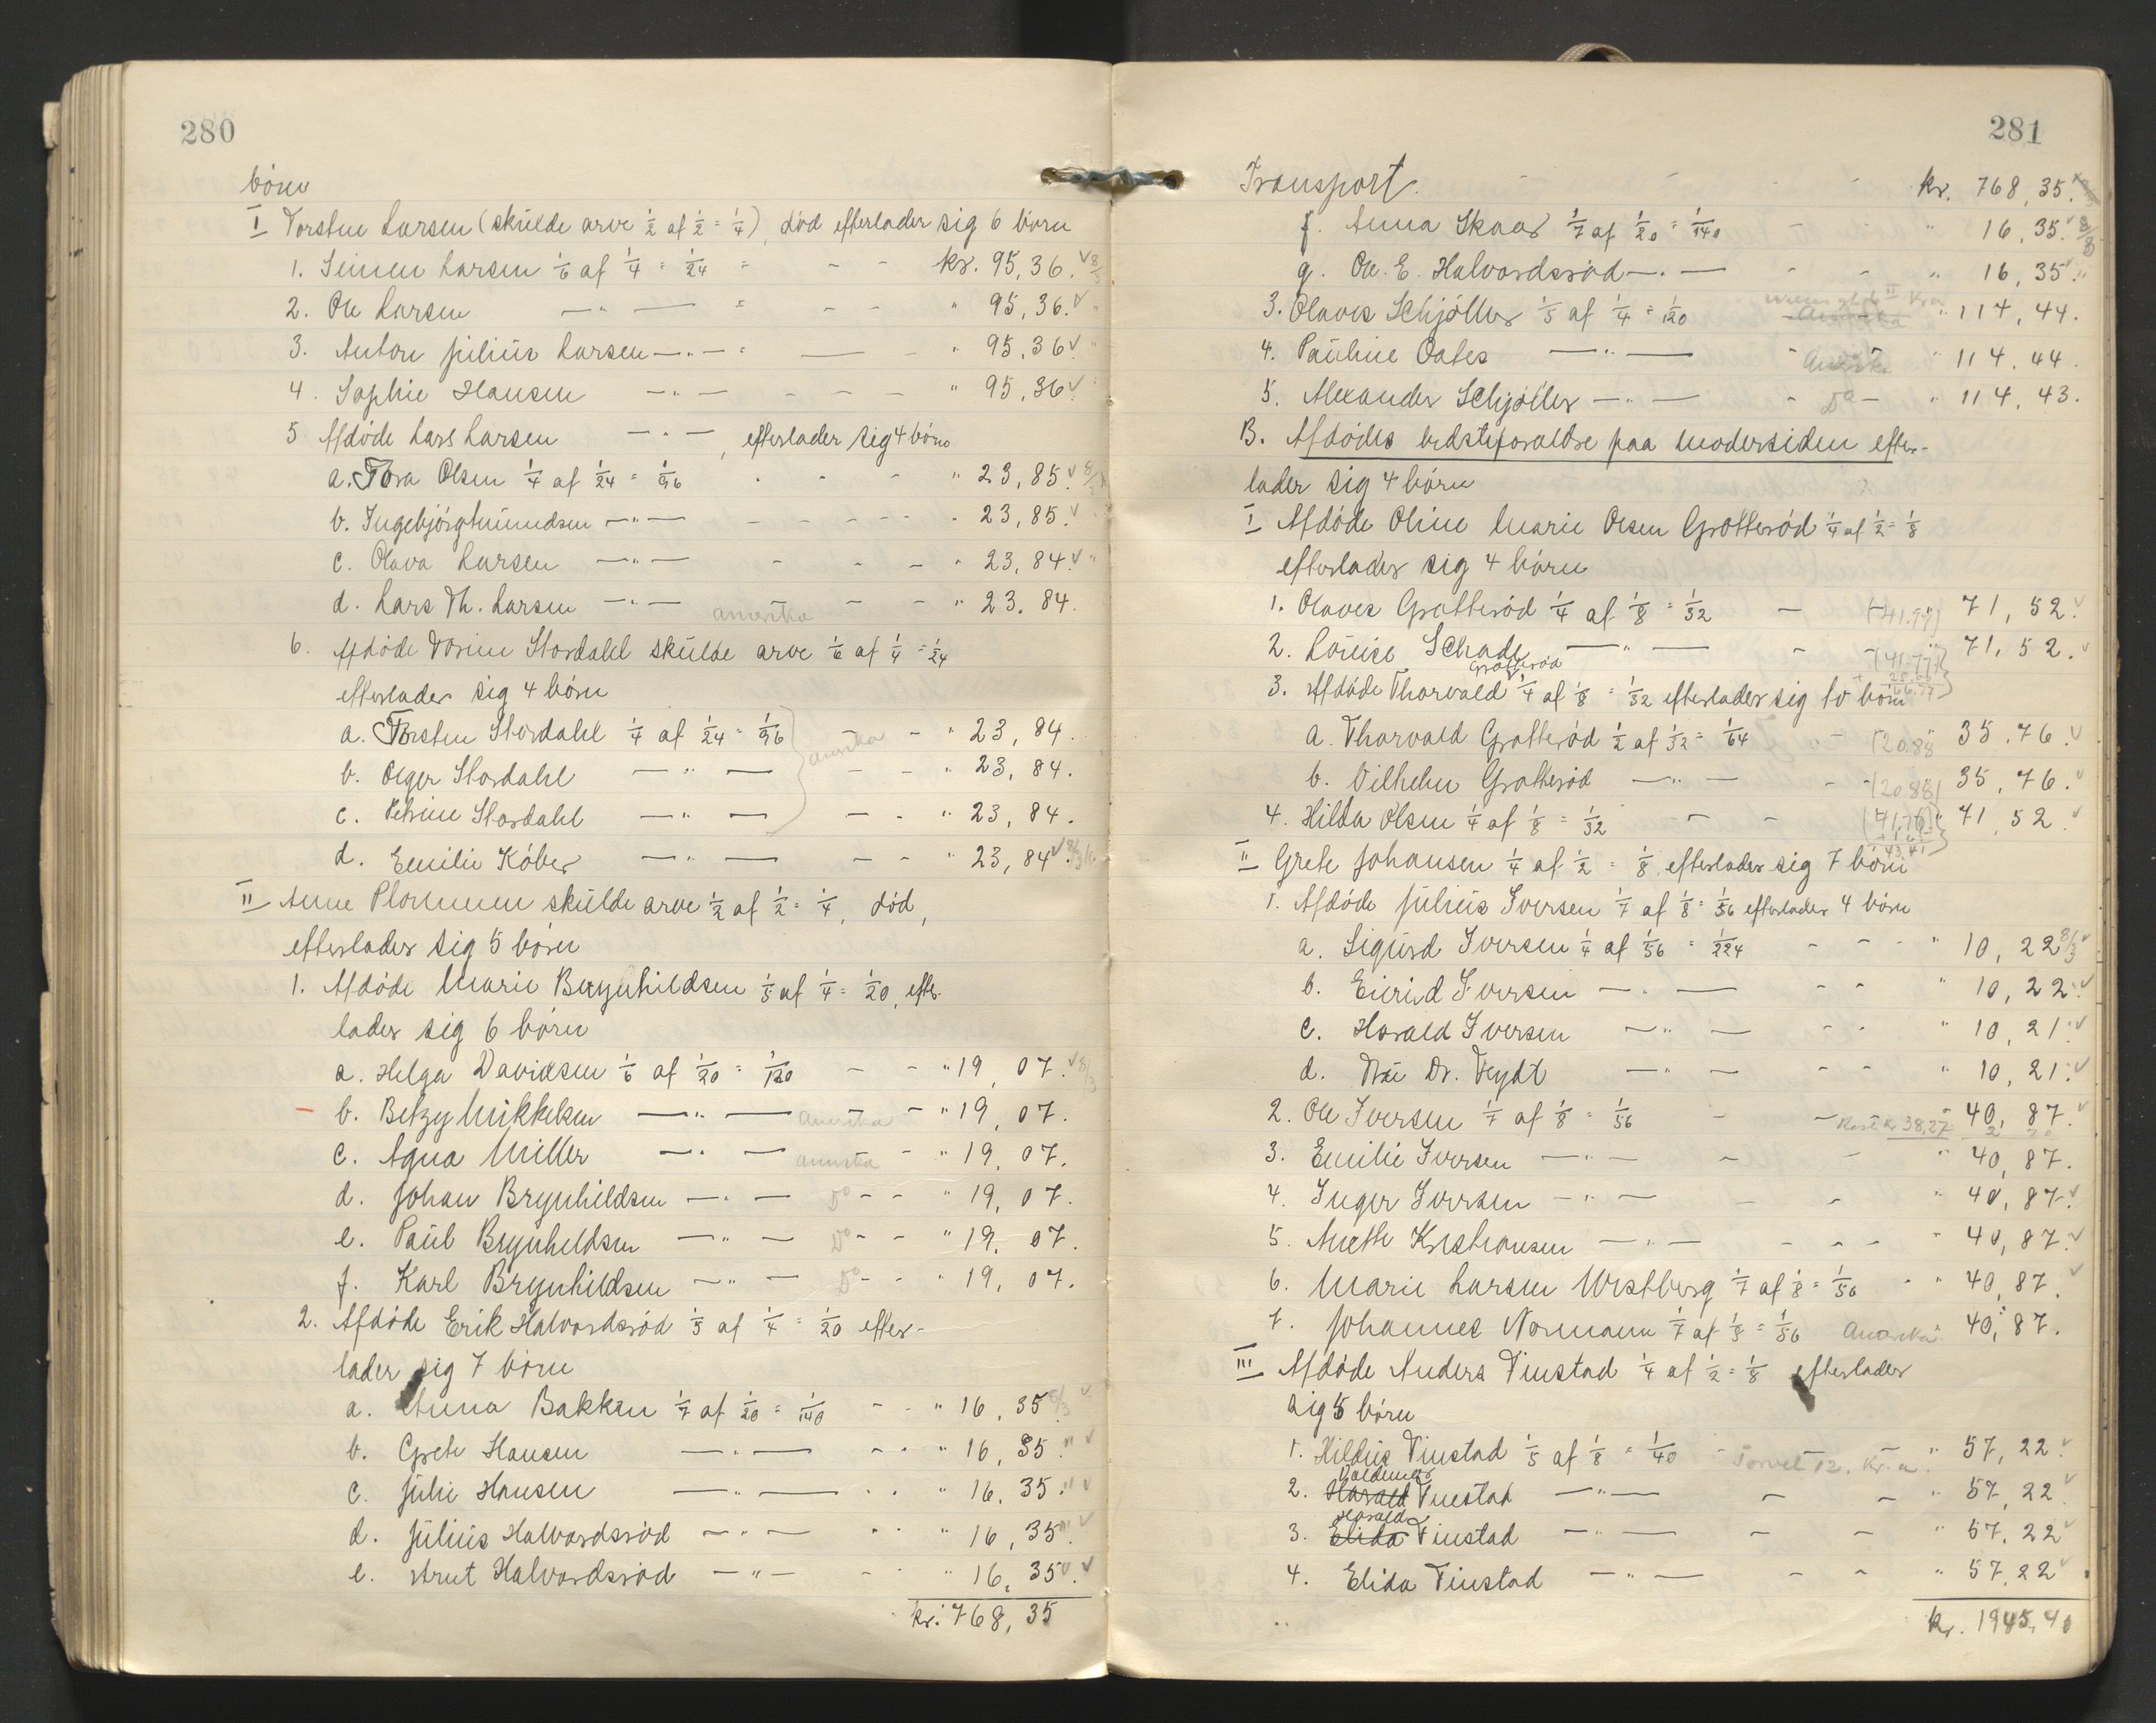 280
börn
I Torsten Larsen (skulde arve 1/2 af 1/2 = 1/4), död efterlader sig 6 börn
1. Simen Larsen 1/6 af 1/4 = 1/24 = - - kr. 95,36.
2. Ole Larsen —"— = - - " 95,36.
3. Anton Julius Larsen —"— = — - " 95,36.
4. Sophie Hansen —"— - - - " 95,36.
5 Afdöde Lars Larsen —"—, efterlader sig 4 börn
a. Thora Olsen 1/4 af 1/24 = 1/96 - - - " 23,85.
b. Ingebjörg Amundsen —"— - - - - " 23,85.
c. Olava Larsen —"— - - - " 23,84.
d. Lars Th. Larsen —"— amerika - - - " 23.84.
6. Afdöde Torine Stordahl skulde arve 1/6 af 1/4 = 1/24
efterlader sig 4 börn
a. Torsten Stordahl 1/4 af 1/24 = 1/96 - - " 23,84.
b. Olger Stordahl —"— amerika - - " 23,84.
c. Petrine Stordahl —"— - - " 23,84.
d. Emilie Köber —"— - - " 23,84
II Anne Plommen skulde arve 1/2 af 1/2 = 1/4, död,
efterlader sig 5 börn
1. Afdöde Marie Brynhildsen 1/5 af 1/4 = 1/20, efter-
lader sig 6 börn
a. Helga Davidsen 1/6 af 1/20 = 1/120 - - " 19,07.
b. Betzy Mikkelsen —"— amerika - - " 19,07.
c. Agna Miller —"— amerika - " 19,07.
d. Johan Brynhildsen —"— Do - - " 19,07.
e. Paul Brynhildsen —"— Do - - " 19,07.
f. Karl Brynhildsen —"— Do - - " 19,07.
2. Afdöde Erik Halvordsröd 1/5 af 1/4 = 1/20 efter-
lader sig 7 börn
a. Anna Bakken 1/7 af 1/20 = 1/140 - - " 16,35
b. Grete Hansen —"— - - " 16,35
c. Julie Hansen —"— - - " 16,35
d. Julius Halvordsröd —"— - - " 16,35
e. Arnt Halvordsröd —"— - - " 16,35
kr. 768,35
281
Transport. - - - - kr. 768,35.
f. Anna Skaar 1/7 af 1/20 = 1/140 - - " 16,35.
g. Ole E. Halvordsröd —"— - - " 16,35.
3. Olaves Schjöller 1/5 af 1/4 = 1/20 Amerika " 114,44.
4. Pauline Oates —"— Amerika " 114,44.
5. Alexander Schjöller —"— - Do - " 114,43.
B. Afdödes bedsteforældre paa modersiden efter-
lader sig 4 börn
I Afdöde Oline Marie Olsen Grotteröd 1/4 af 1/2 = 1/8
efterlader sig 4 börn
1. Olaves Grotteröd 1/4 af 1/8 = 1/32 - - 71,52.
2. Louise Schade —"— - - 71,52.
3. Afdöde Thorvald Grotteröd 1/4 af 1/8 = 1/32 efterlader sig to börn
a. Thorvald Grotteröd 1/2 af 1/32 = 1/64 " - (20.88 35,76.
b. Vilhelm Grotteröd —"— - - (20.88) 35,76.
4. Hilda Olsen 1/4 af 1/8 = 1/32 - - 71,52
II Grete Johansen 1/4 af 1/2 = 1/8, efterlader sig 7 börn
1. Afdöde Julius Iversen 1/7 af 1/8 = 1/56 efterlader 4 börn
a. Sigurd Iversen 1/4 af 1/56 = 1/224 - - - " 10,22
b. Enrid Iversen —"— - - " 10,22.
c. Harald Iversen —"— - - " 10,21.
d. Fru Dr. Feydt —"— - - " 10,21.
2. Ole Iversen 1/7 af 1/8 = 1/56 - - Rest kr 38,27 40,87.
3. Emilie Iversen —"— - - " 40,87.
4. Inger Iversen —"— - - " 40,87.
5. Anette Kristiansen —"— - - - " 40,87.
6. Marie Larsen Westberg 1/7 af 1/8 = 1/56 - " 40,87.
7. Johannes Normann 1/7 af 1/8 = 1/56 Amerika " 40,87.
III Afdöde Anders Finstad 1/4 af 1/2 = 1/8 efterlader
sig 5 börn
1. Hildus Finstad 1/5 af 1/8 = 1/40 - Torvet 12. Kr.a " 57,22.
2. Harald Valdemar Finstad —"— - - " 57,22
3. Elida Harald Finstad —"— - - " 57,22
4. Elida Finstad —"— - - " 57,22
kr. 1945,40